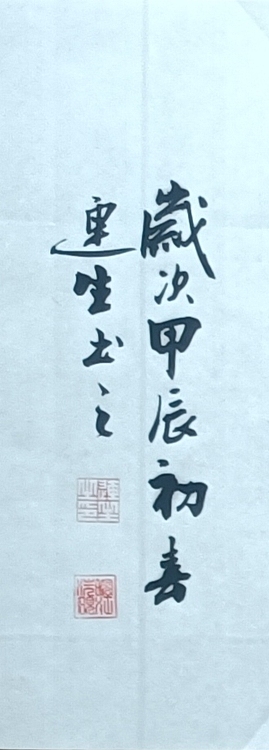 歲次甲辰初春
運生书之